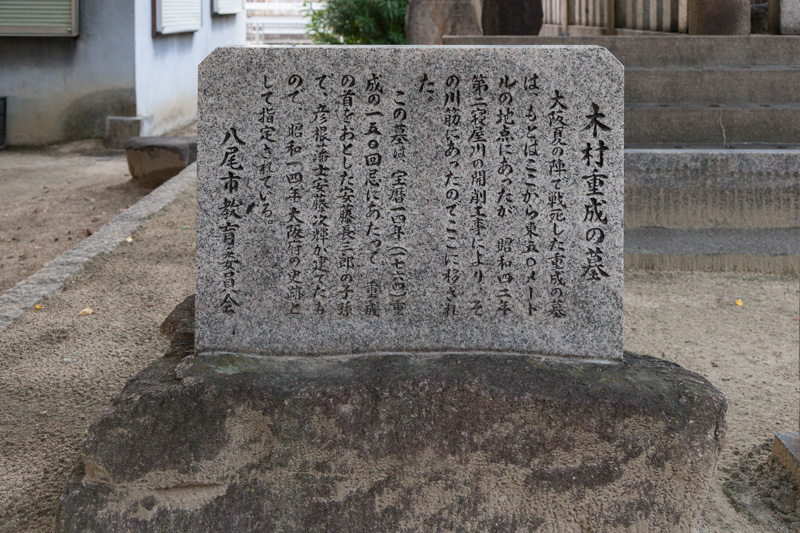 木村重成の墓
大阪夏の陣で戦死した重成の墓
は、もとはここから東五〇メート
ルの地点にあったが、昭和四二年
第二寝屋川の開削工事により、そ
の川筋にあったのでここに移され
た。
この墓は、宝暦一四年（一七六四）重
成の一五〇回忌にあたって、重成
の首をおとした安藤長三郎の子孫
で、彦根藩士安藤次輝が建てたも
ので、昭和一四年大阪府の史跡と
して指定されている。
八尾市教育委員会